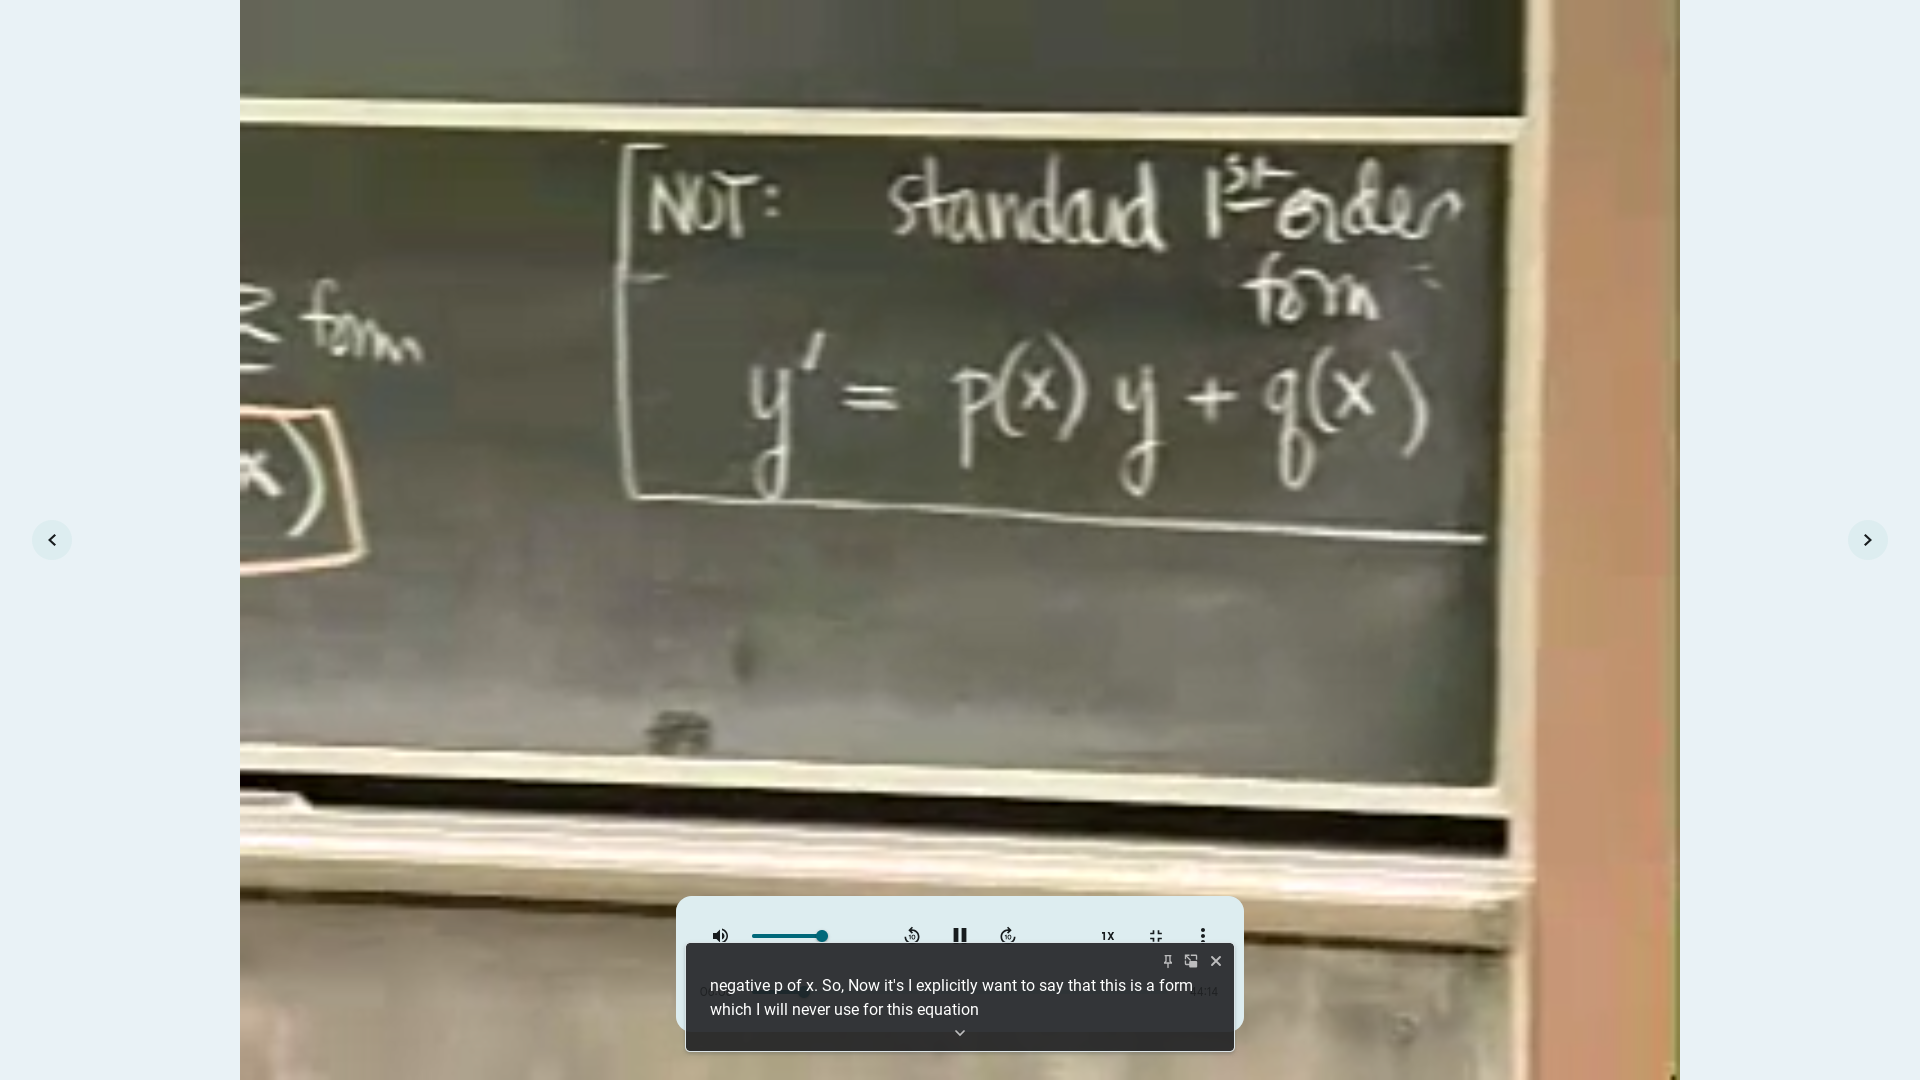 NOT: standard 1st order
form
form
y' = p(x) y + q(x)
x)
1X
negative p of x. So, Now it's I explicitly want to say that this is a form
which I will never use for this equation